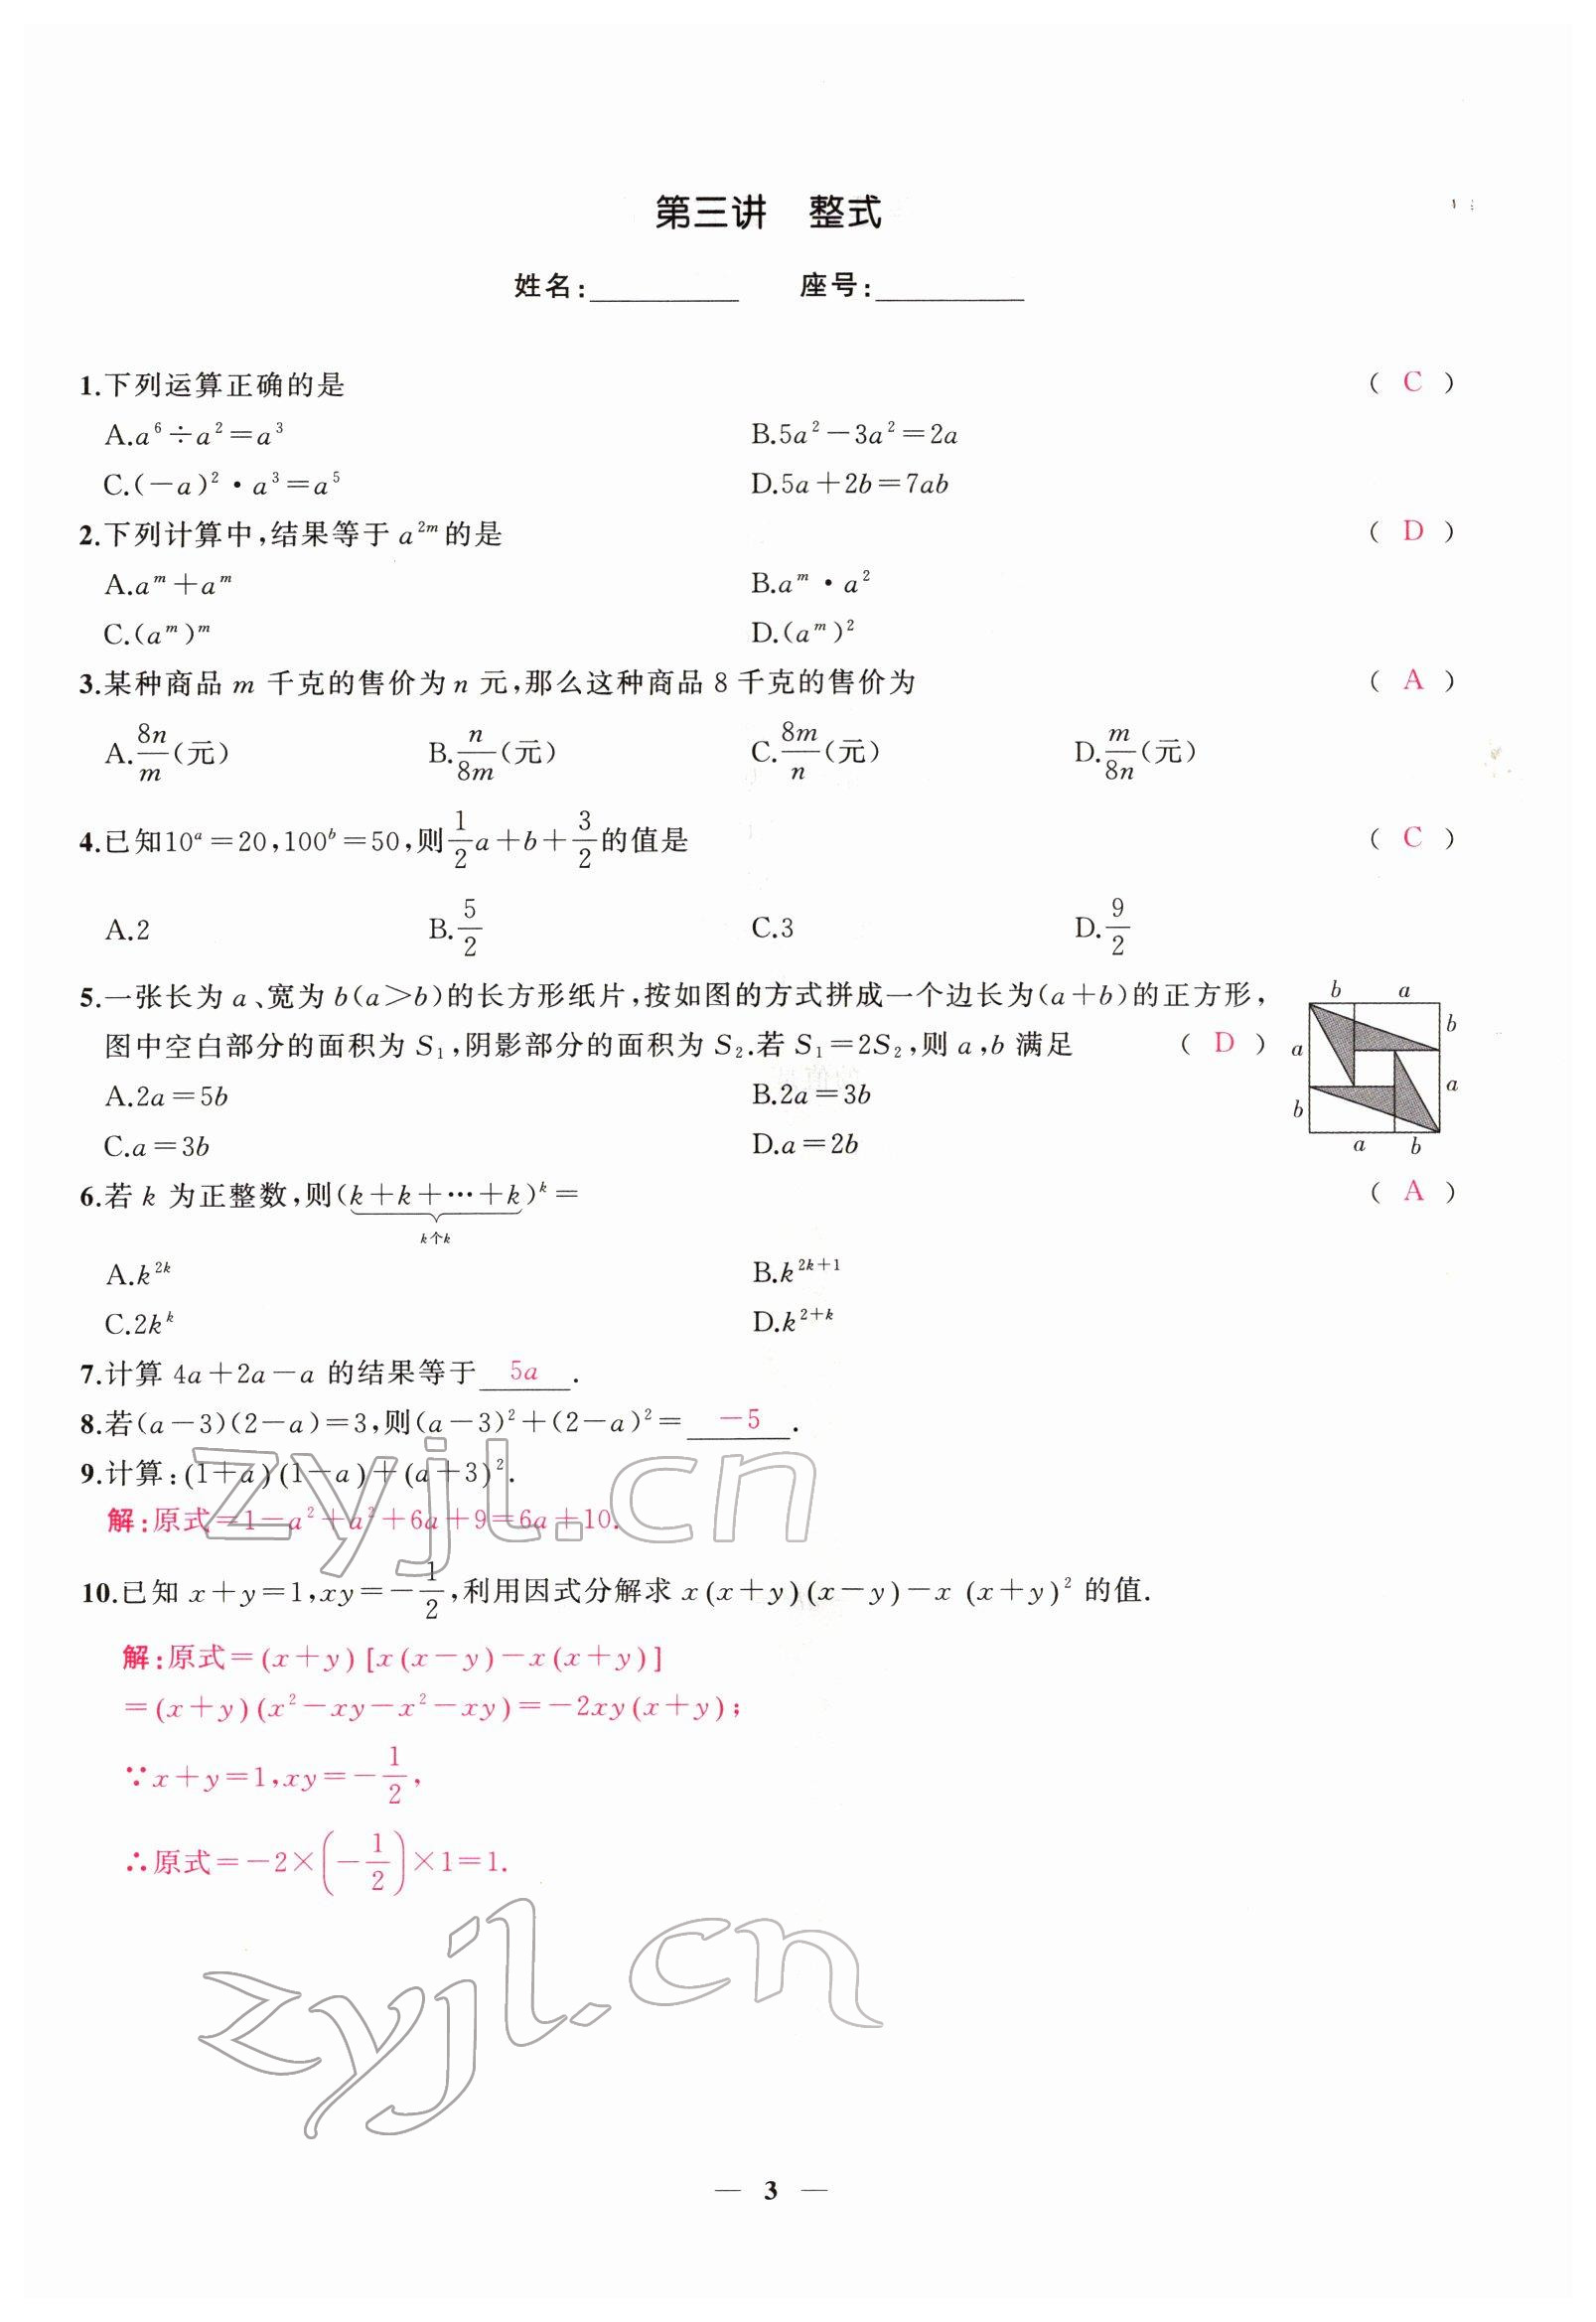 第三讲　整式
姓名:________　座号:________
1.下列运算正确的是 ( C )
A.a⁶÷a²=a³　B.5a²-3a²=2a
C.(-a)²·a³=a⁵　D.5a+2b=7ab
2.下列计算中,结果等于 a^{2m} 的是 ( D )
A.a^m+a^m　B.a^m·a²
C.(a^m)^m　D.(a^m)²
3.某种商品 m 千克的售价为 n 元,那么这种商品 8 千克的售价为 ( A )
A.\frac{8n}{m}(元)　B.\frac{n}{8m}(元)　C.\frac{8m}{n}(元)　D.\frac{m}{8n}(元)
4.已知10^a=20,100^b=50,则\frac{1}{2}a+b+\frac{3}{2}的值是 ( C )
A.2　B.\frac{5}{2}　C.3　D.\frac{9}{2}
5.一张长为 a、宽为 b(a>b)的长方形纸片,按如图的方式拼成一个边长为(a+b)的正方形,
图中空白部分的面积为 S₁,阴影部分的面积为 S₂.若 S₁=2S₂,则 a,b 满足 ( D )
A.2a=5b　B.2a=3b
C.a=3b　D.a=2b
b a
b
a
a
b
a b
6.若 k 为正整数,则(k+k+···+k)^k= ( A )
k个k
A.k^{2k}　B.k^{2k+1}
C.2k^k　D.k^{2+k}
7.计算 4a+2a-a 的结果等于 5a .
8.若(a-3)(2-a)=3,则(a-3)²+(2-a)²= -5 .
9.计算:(1+a)(1-a)+(a+3)².
解:原式=1-a²+a²+6a+9=6a+10.
10.已知 x+y=1,xy=-\frac{1}{2},利用因式分解求 x(x+y)(x-y)-x (x+y)² 的值.
解:原式=(x+y)[x(x-y)-x(x+y)]
=(x+y)(x²-xy-x²-xy)=-2xy(x+y);
∵x+y=1,xy=-\frac{1}{2},
∴原式=-2×(-\frac{1}{2})×1=1.
zyjl.cn
zyjl.cn
— 3 —